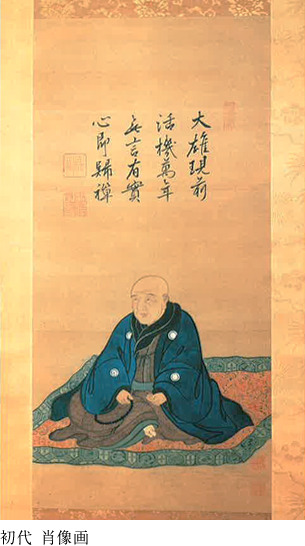 大雄現前
活機萬年
無言有實
心即歸禅
初代 肖像画